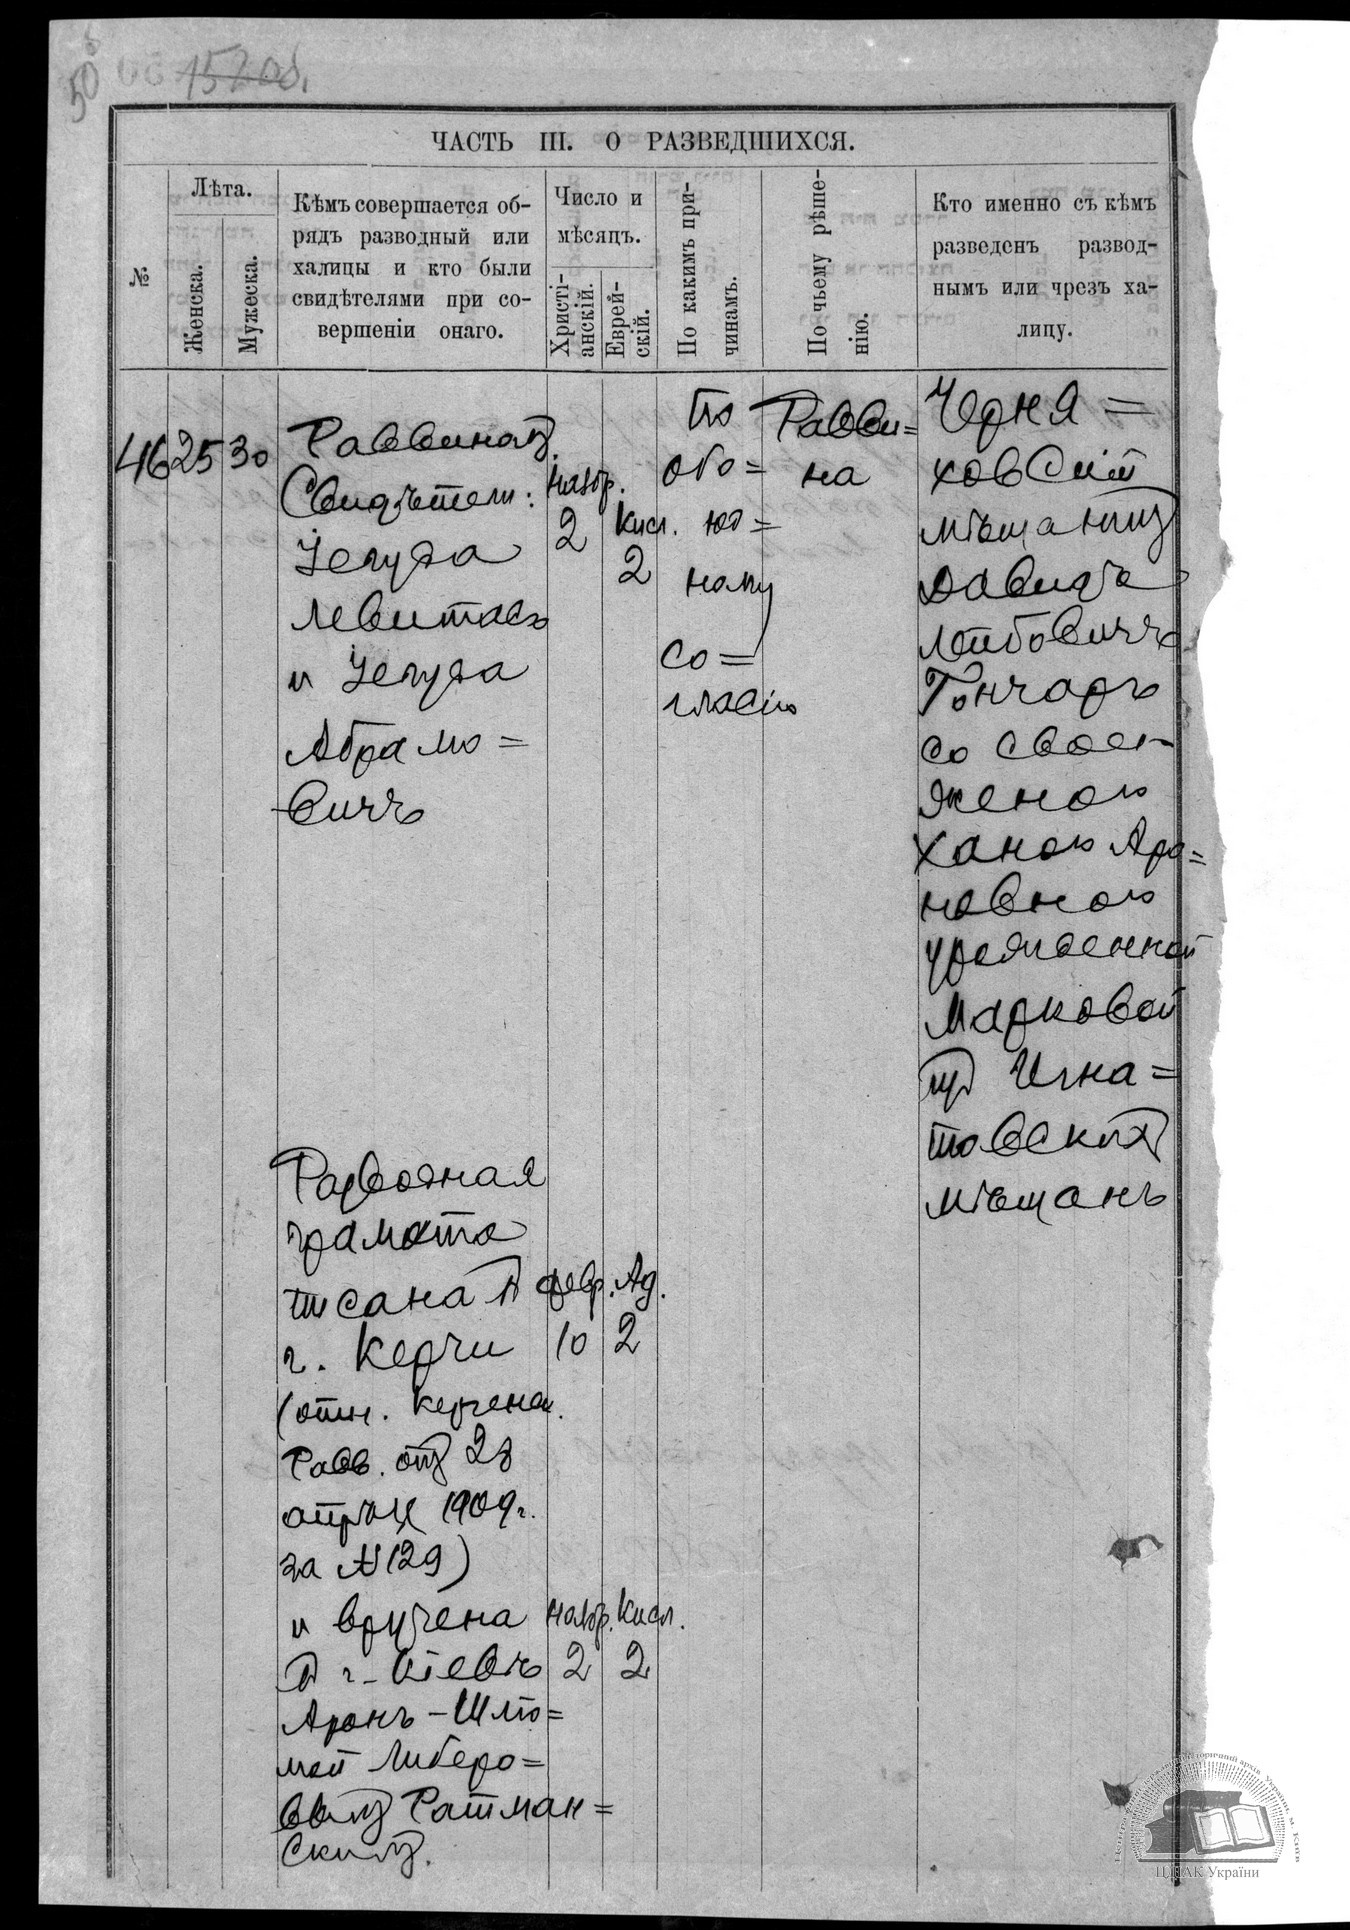 50
152 об.
ЧАСТЬ III. О РАЗВЕДШИХСЯ.
№
Лѣта.
Женска.
Мужеска.
Кѣмъ совершается об-
рядъ разводный или
халицы и кто были
свидѣтелями при со-
вершеніи онаго.
Число и
мѣсяцъ.
Христі-
анскій.
Еврей-
скій.
По какимъ при-
чинамъ.
По чьему рѣше-
нію.
Кто именно съ кѣмъ
разведенъ развод-
нымъ или чрезъ ха-
лицу.
46 25 30
Раввиномъ.
Свидѣтели:
Іегуда
Левитасъ
и Іегуда
Абрамо=
вичъ
Ноябр.
2
Кисл.
2
По
обо=
юд=
ному
со=
гласію
Равви=
на
Черня=
ховскій
мѣщанинъ
Давидъ
Лейбовичъ
Гончаръ
со своей
женою
Ханою Аро=
новною
урожденной
Марковой
изъ Игна=
товскихъ
мѣщанъ
Разводная
грамота
писана въ
г. Керчи
Февр. Ад.
10 2
(отн. Керченск.
Равв. отъ 28
апрѣля 1909 г.
за № 129)
и вручена
Ноябр. Кисл.
въ г. Кіевѣ
2 2
Аронъ-Шло=
мой Либеро=
вымъ Ратман=
скимъ.
ЦДІАК України